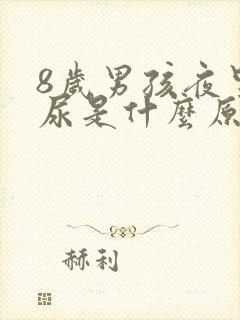 8歲男孩夜
尿是什麼原
赫利